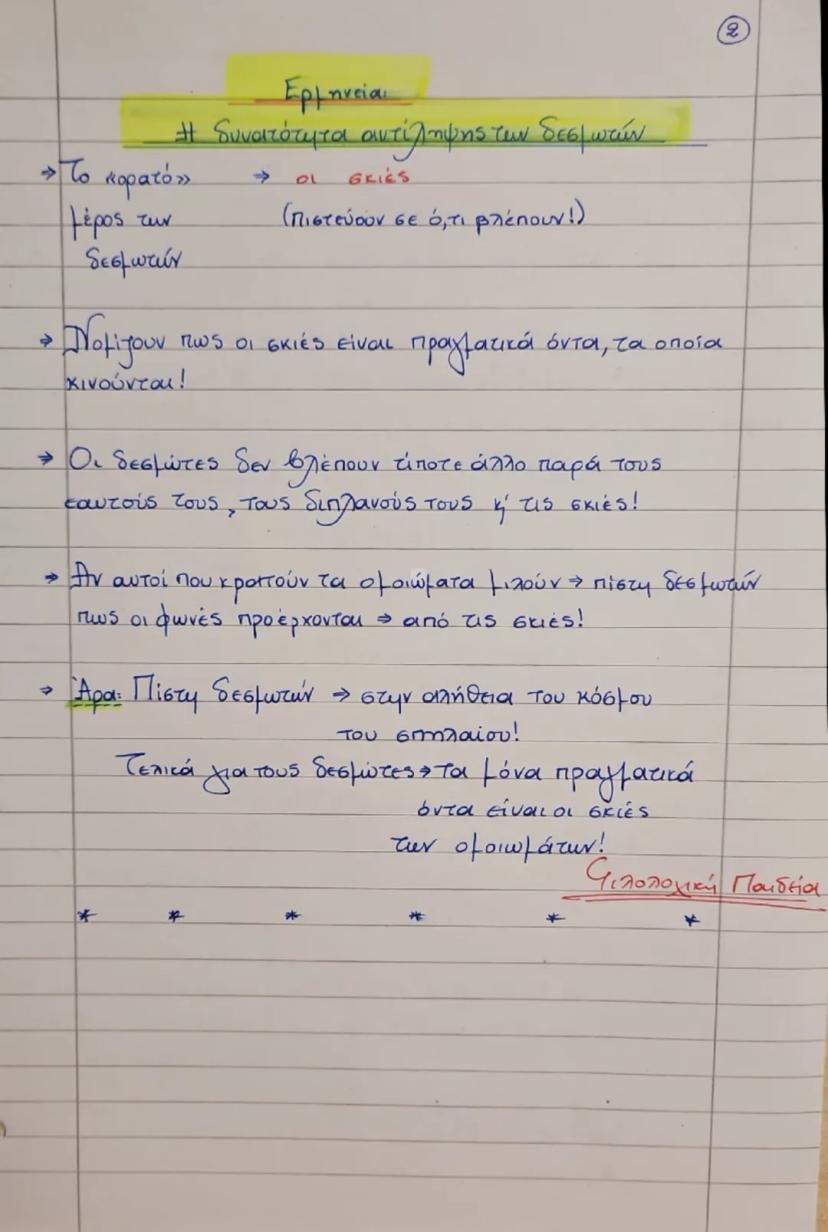 2
Ερμηνεία:
Η δυνατότητα αντίληψης των δεσμωτών
→ Το «ορατό» → οι σκιές
μέρος των (πιστεύουν σε ό,τι βλέπουν!)
δεσμωτών
→ Νομίζουν πως οι σκιές είναι πραγματικά όντα, τα οποία
κινούνται!
→ Οι δεσμώτες δεν βλέπουν τίποτε άλλο παρά τους
εαυτούς τους, τους διπλανούς τους κ' τις σκιές!
→ Αν αυτοί που κρατούν τα ομοιώματα μιλούν → πίστη δεσμωτών
πως οι φωνές προέρχονται → από τις σκιές!
→ Άρα: Πίστη δεσμωτών → στην αλήθεια του κόσμου
του σπηλαίου!
Τελικά για τους δεσμώτες → τα μόνα πραγματικά
όντα είναι οι σκιές
των ομοιωμάτων!
Φιλολογική Παιδεία
* * * * * *